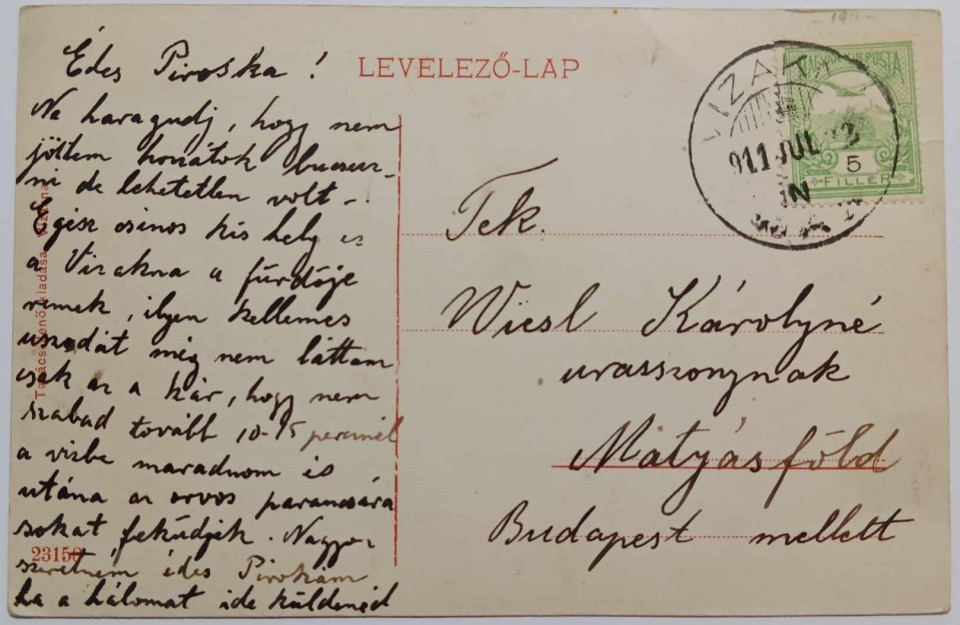 Édes Piroska !
LEVELEZŐ-LAP
Ne haragudj, hogy nem
jöttem hozzátok bucsuz-
ni de lehetetlen volt -.
Egész csinos kis hely ez
a Vizakna a fürdője
remek, ilyen kellemes
uszodát még nem láttam
csak az a kár, hogy nem
szabad tovább 10-15 percnél
a vizbe maradnom és
utána az orvos parancsára
sokat feküdjek. Nagyon
szeretném édes Piroskám
ha a hálomat ide küldenéd
23150
kiadása
- 1911 -
VIZAKNA
911 JUL 22
MAGYAR KIR. POSTA
5
FILLÉR
Tek.
Wiesl Károlyné
urasszonynak
Mátyásföld
Budapest mellett